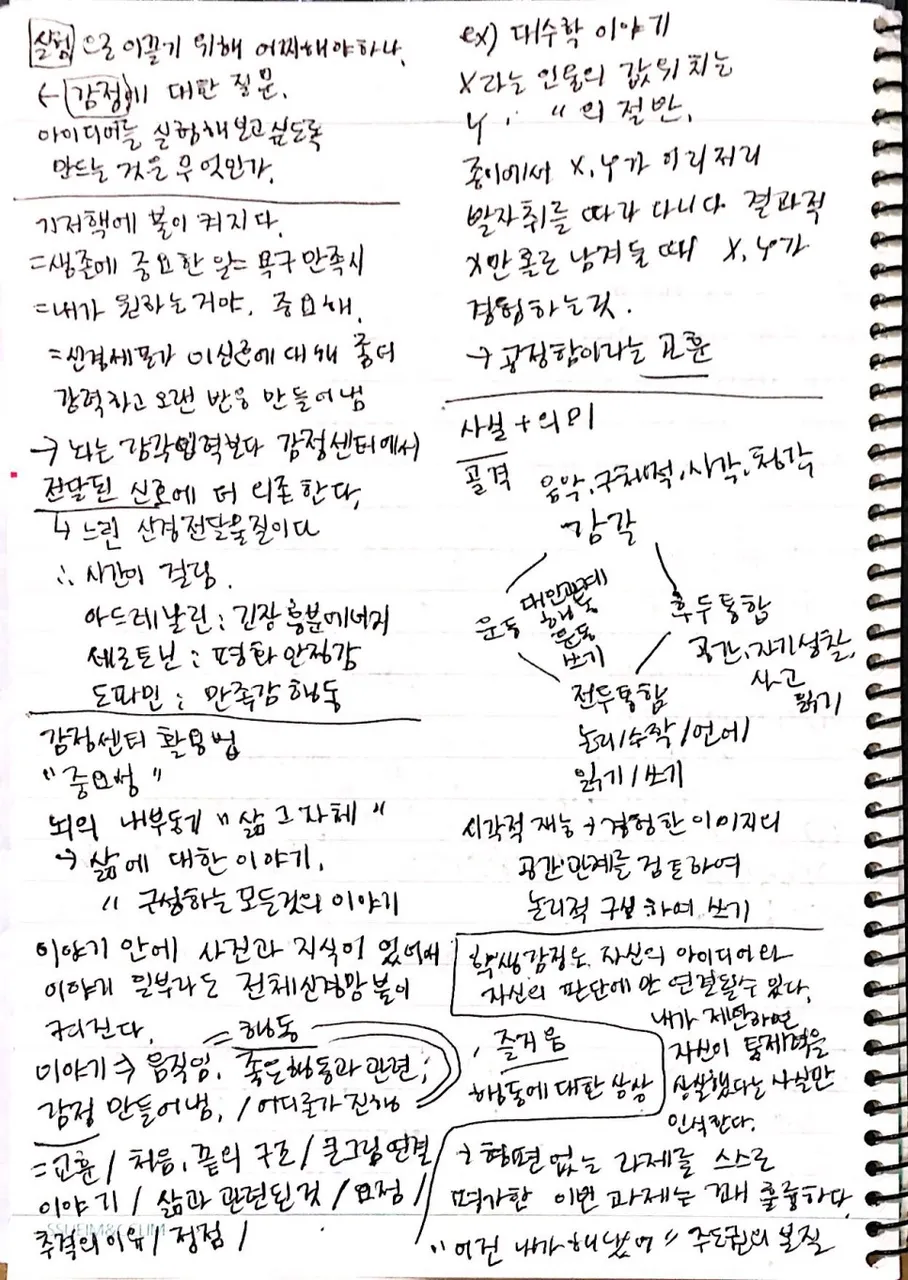 실험으로 이끌기 위해 어찌해야하나.
← 감정에 대한 질문.
아이디어를 실험해보고싶도록
만드는 것은 무엇인가.
기저핵에 불이 켜지다.
=생존에 중요한 일= 욕구만족시
=내가 원하는거야. 중요해.
=신경세포가 이신호에 대해 좀더
강력하고 오랜 반응 만들어냄
→ 뇌는 감각입력보다 감정센터에서
전달된 신호에 더 의존한다.
↳ 느린 신경전달물질이다
∴ 시간이 걸림.
아드레날린 : 긴장흥분에너지
세로토닌 : 평화안정감
도파민 : 만족감 행동
감정센터 활용법
"중요성"
뇌의 내부동기 "삶 그 자체"
→ 삶에 대한 이야기.
" 구성하는 모든것의 이야기
이야기 안에 사건과 지식이 있어
이야기 일부라도 전체신경망 불이
켜진다. = 행동
이야기 → 움직임. 좋은행동과 관련;
감정 만들어냄. / 어디론가 진행
=교훈 / 처음, 끝의 구조 / 큰그림 연결
이야기 / 삶과 관련된것 / 요점 /
추격의 이유 / 정점 /
ex) 대수학 이야기
X라는 인물의 값위치는
y " 의 절반.
종이에서 X, y가 이리저리
발자취를 따라 다니다 결과적
X만 홀로 남겨둘때 X, y가
경험하는것.
→ 공정함이라는 교훈
사실 + 의미
골격 음악, 구체적, 시각, 청각
감각
운동 대인관계
행동
운동
쓰기
후두통합
공간, 자기성찰,
사고
읽기
전두통합
논리/수학/언어/
읽기/쓰기
시각적 재능 → 경험한 이미지의
공간관계를 검토하여
논리적 구성하여 쓰기
학생감정은 자신의 아이디어와
자신의 판단에만 연결될수 있다.
내가 제안하면
자신이 통제력을
상실했다는 사실만
인식한다.
, 즐거움
행동에 대한 상상
→ 형편 없는 과제를 스스로
평가한 이번 과제는 꽤 훌륭하다.
"이건 내가 해냈어" 주도권의 본질